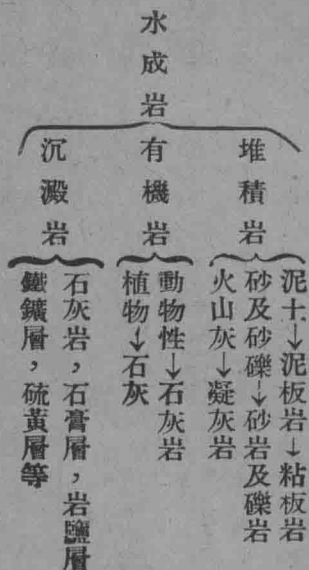 水成岩
堆積岩
泥土→泥板岩→粘板岩
砂及砂礫→砂岩及礫岩
火山灰→凝灰岩
有機岩
動物性→石灰岩
植物→石灰
沉澱岩
石灰岩，石膏層，岩鹽層
鐵鑛層，硫黃層等